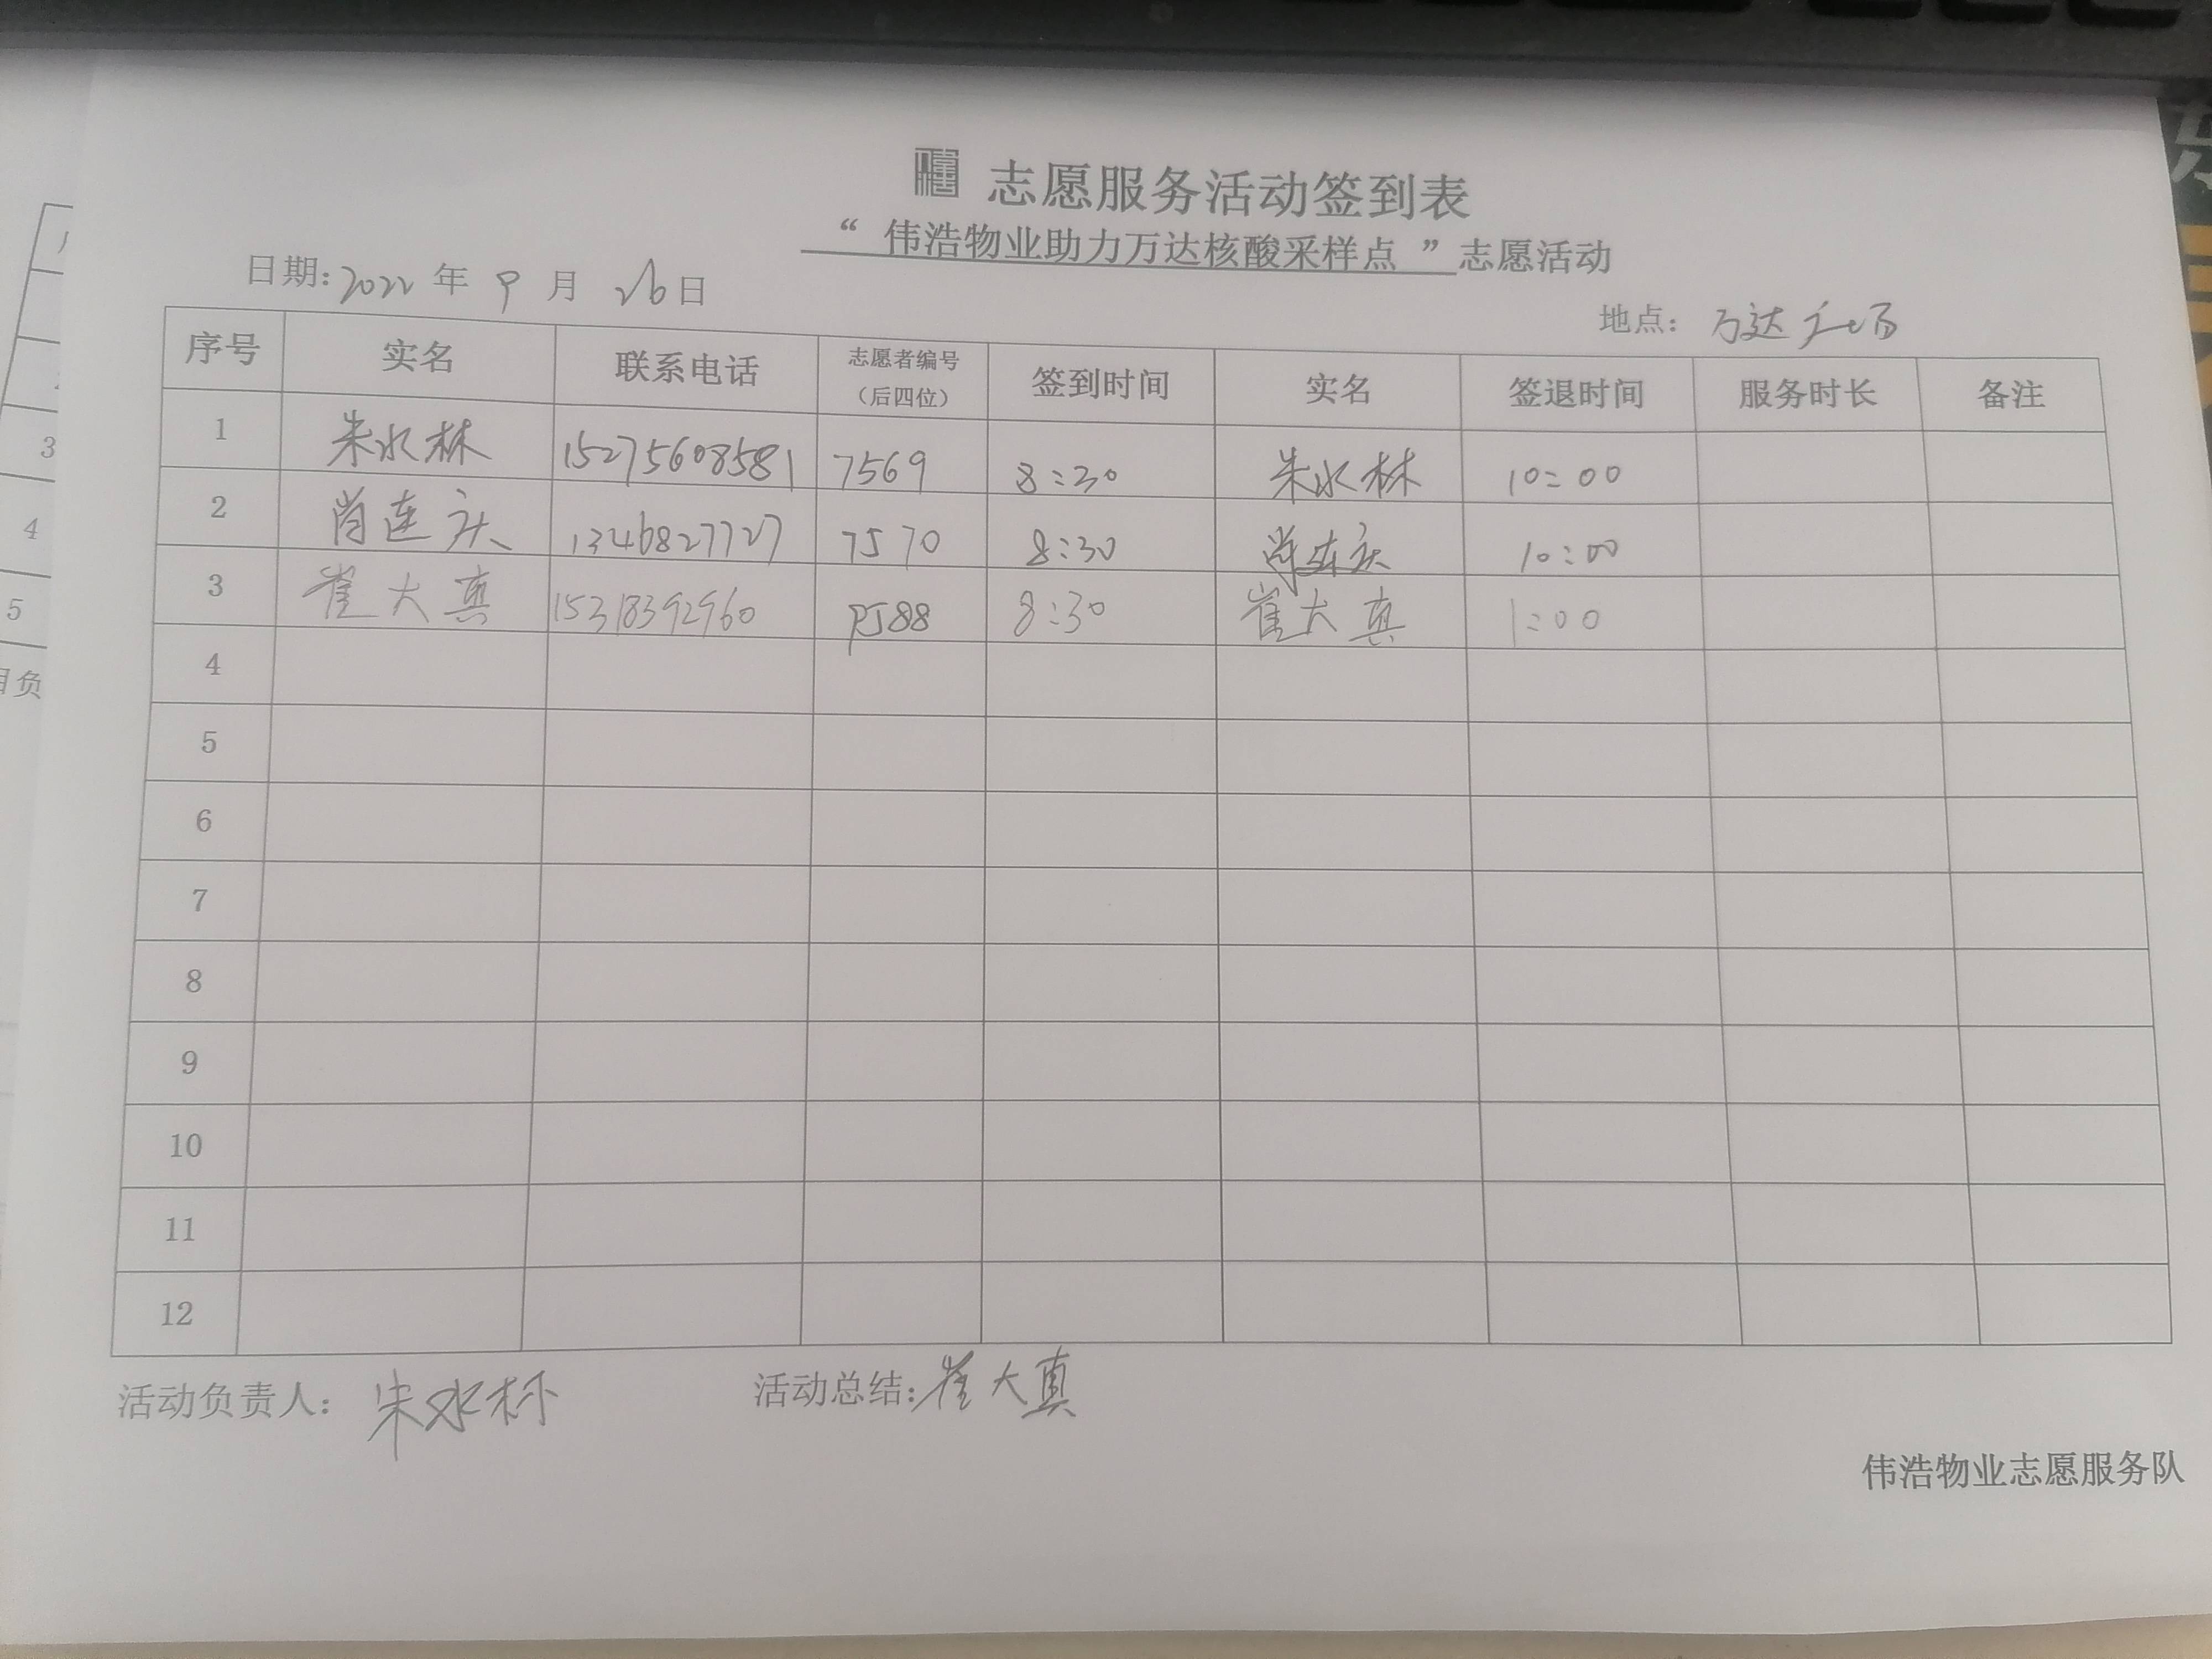 志愿服务活动签到表
“ 伟浩物业助力万达核酸采样点 ”志愿活动
日期: 2022 年 9 月 26 日
地点: 万达广场
序号 实名 联系电话 志愿者编号（后四位） 签到时间 实名 签退时间 服务时长 备注
1 朱水林 15275608581 7569 8:30 朱水林 10:00
2 肖连庆 1346827727 7570 8:30 肖连庆 10:00
3 崔大真 15318392960 8:30 崔大真 1:00
4
5
6
7
8
9
10
11
12
活动负责人: 朱水林 活动总结: 崔大真
伟浩物业志愿服务队
3
4
5
目负